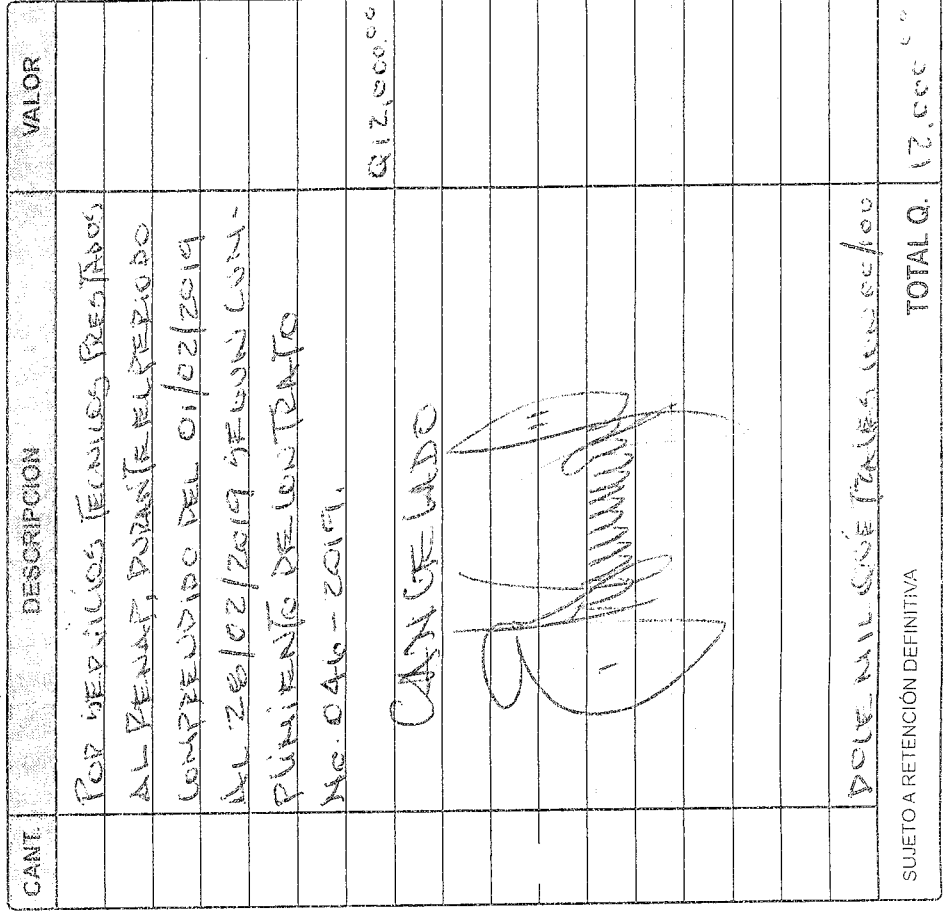 CANT. DESCRIPCION VALOR
POR SERVICIOS TECNICOS PRESTADOS
AL RENAP, DURANTE EL PERIODO
COMPRENDIDO DEL 01/02/2019
AL 28/02/2019 SEGUN CUM-
PLIMIENTO DE CONTRATO
No. 046-2019.
Q12,000.00
CANCELADO
DOCE MIL QUETZALES CON 00/100
SUJETO A RETENCIÓN DEFINITIVA
TOTAL Q. 12,000.00